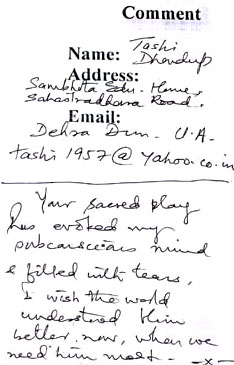 Comment
Name: Tashi Dhondup
Address:
Sambhota Sdn. Home,
Sahastradhara Road.
Email:
Dehra Dun - U.A-
tashi1957@yahoo.co.in
Your sacred play
has evoked my
subconscious mind
& filled with tears,
I wish the world
understood Him
better, now, when we
need him most. - x -